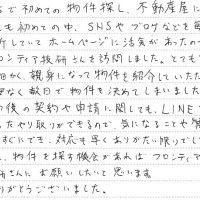 で初めての物件探し、不動産屋に
も初めての中、SNSやブログなどを
折していてホームページに活気があったの
ロンティア技研さんを訪問しました。とても
細かく、親身になって物件を紹介していただ
なく数日で物件を決めてしまいました
の後の契約や申請に関しても、LINE
ったやり取りができるので、気になることや質
すぐにでき、対応も早くありがたい限りでし
、物件を探す機会があればフロンティア
研さんにお願いしたいと思います
りがとうございました。